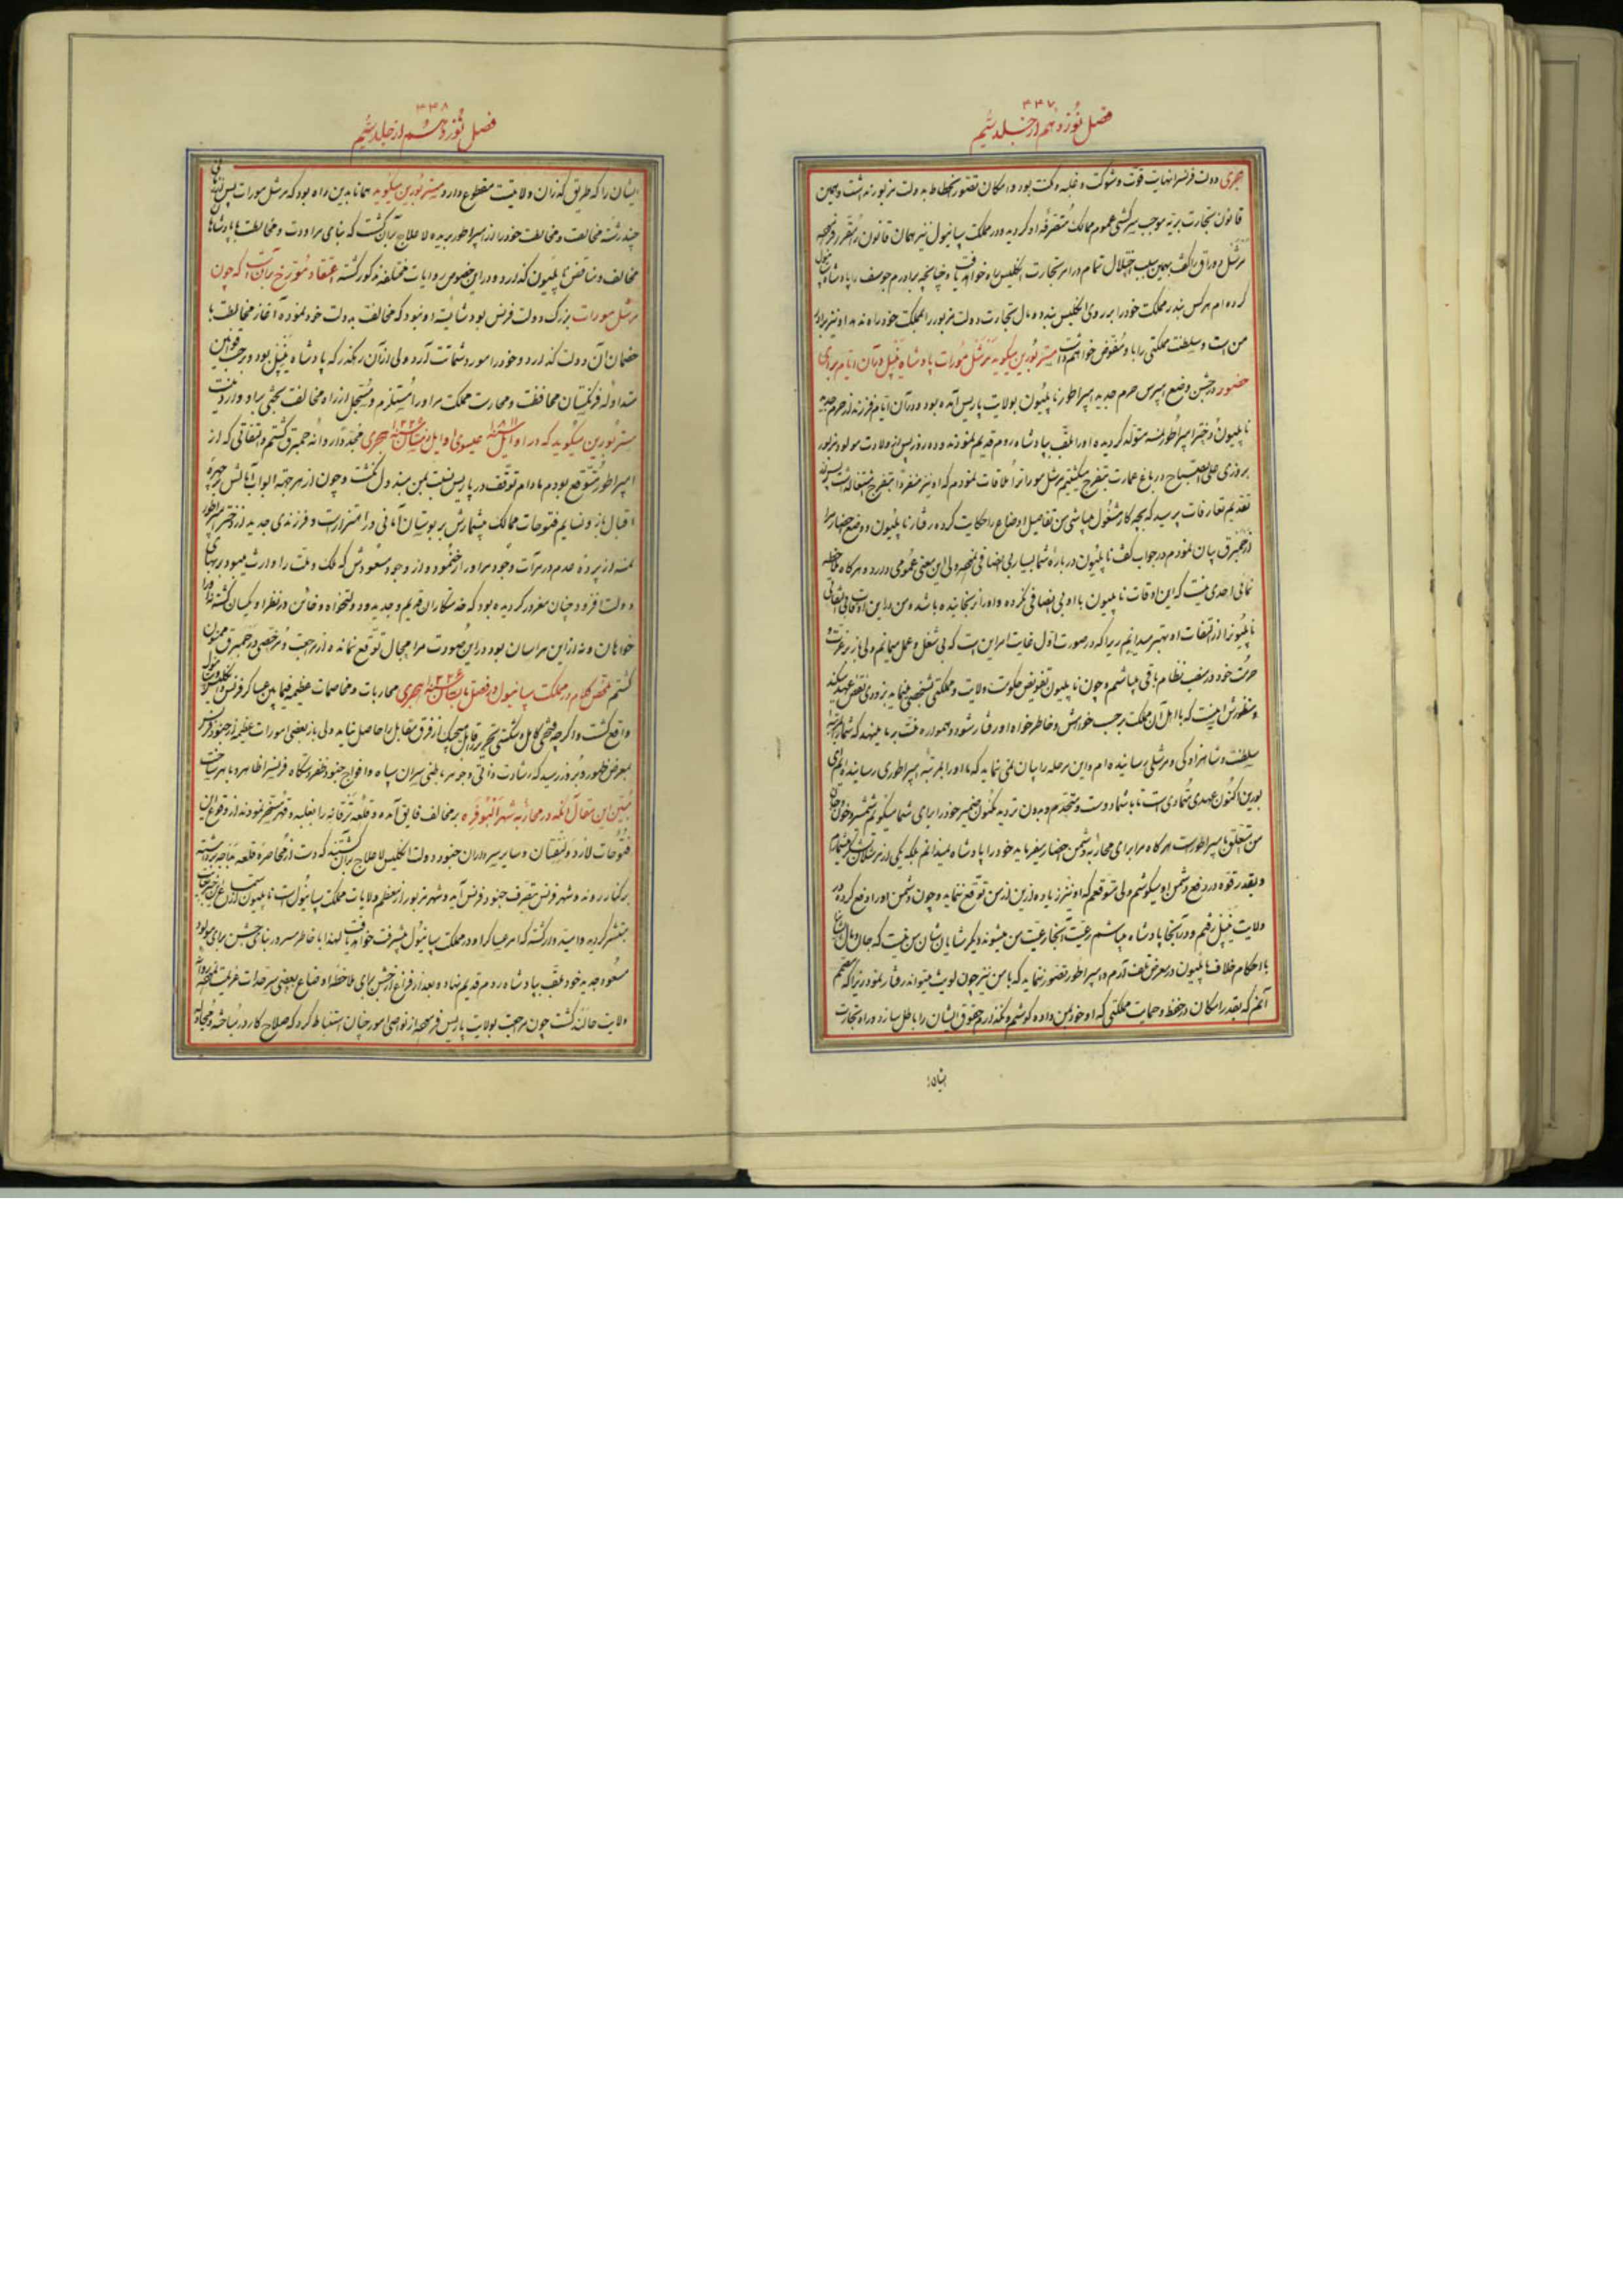 ۴۳۷
فصل نوزدهم از جلد سیم
هجری دولت فرنسرا نهایت قوت و شوکت و غلبه و مکنت بود و امکان تصور انحطاط بدولت مزبور نداشت و همین
قانون تجارت بریه موجب سرکشی عموم ممالک متصرفه او گردیده و در مملکت سپانیول نیز همان قانون را مقرر فرموده
مرشل دوراق را گفت بهمین سبب اختلال تمام در امر تجارت انگلیس راه خواهد یافت و چنانچه برادرم جوسف را پادشاه سپانیول
کرده ام هرکس بندر مملکت خود را بر روی انگلیس بنده و مال تجارت دولت مزبور را بمملکت خود راه ندهد او نیز برادر
من است و سلطنت مملکتی را باو مفوض خواهم داشت مستر بورین میگوید مرشل مورات پادشاه نیپل در آن ایام برای
حضور در جشن وضع پسر از حرم جدید امپراطور ناپلیون بولایت پاریس آمده بود و در آن ایام فرزند از حرم جدید
ناپلیون دختر امپراطور نمسه متولد گردیده او را ملقب بپادشاه روم قدیم نمودند و ده روز پس از ولادت مولود مزبور
بروزی علی الصباح در باغ عمارت بتفرج میگشتم مرشل مورات را ملاقات نمودم که او نیز منفردا بتفرج اشتغال داشت پس از
تقدیم تعارفات پرسید که بچه کار مشغول میباشی من تفاصیل اوضاع را حکایت کرده رفتار ناپلیون و وضع احضار مرا
از همبرق بیان نمودم در جواب گفت ناپلیون در باره شما بسیار بی انصافی نموده ولی این معنی عمومی دارد و هرکاه ملاحظه
نمائی احدی نیست که این اوقات ناپلیون با او بی انصافی نکرده و او را نرنجانیده باشد و من در این اوقات بی التفاتی
ناپلیون را از التفات او بهتر میدانم زیرا که در صورت اول غایت امر این است که بی شغل و عمل میمانم ولی باز بر عزت و
حرمت خود در صف نظام باقی میباشم و چون ناپلیون تفویض حکومت ولایت و مملکتی بشخصی نماید بزودی نقض عهد میکند
و منظورش اینست که با اهل آن مملکت بر حسب خواهش و خاطرخواه او رفتار شود و همواره منت بر ما مینهد که شما را بمرتبه
سلطنت و شاهزادگی و مرشلی رسانیده ام و این مرحله را بیان نمی نماید که ما او را بمرتبه امپراطوری رسانیده ایم ای
بورین اکنون عهدی متمادی است ما با شما دوست و متحدیم و بدون تردید مکنون ضمیر خود را برای شما میگویم شمشیر و خون و جان
من متعلق بامپراطور است هرکاه مرا برای محاربه دشمن احضار بفرماید خود را پادشاه نمیدانم بلکه یکی از مرشلان لشکر میشمارم
و بقدر قوه در دفع دشمن او میکوشم ولی متوقعم که او نیز زیاده از این از من توقع ننماید و چون دشمن او را دفع کرده در
ولایت نیپل رفتم و در آنجا پادشاه میباشم رعیت آنجا رعیت من میشوند و دیگر شایان شان من نیست که جان و مال رعایا
با احکام خلاف ناپلیون در معرض تلف آرم و امپراطور تصور ننماید که با من نیز چون لویث میتواند رفتار نمود زیرا که
آنم که بقدر امکان در حفظ و حمایت مملکتی که او خود بمن داده کوشم و نگذارم حقوق ایشان را باطل سازد و راه تجارت
ایشان
۴۳۸
فصل نوزدهم از جلد سیم
ایشان را که طریق گذران ولایتست مقطوع دارد مستر بورین میگوید همانا بدین راه بود که مرشل مورات پس از اندک زمانی
چند رشته مخالفت و مخالطت خود را از امپراطور بریده لاعلاج بر آن گشت که بنای مراودت و مخالطت با پادشاهان
مخالف و مناقض ناپلیون گذارد و در این خصوص روایات مختلفه مذکور گشته اعتقاد مورخ بر آن است که چون
مرشل مورات بزرگ دولت فرنس بود شایسته او نبود که مخالفت بدولت خود نموده آغاز مخالطت با
خصمان آن دولت گذارد و خود را مورد شماتت آرد ولی از آن رهگذر که پادشاه نیپل بود و بر حسب قوانین
متداوله فرنگستان محافظت و محارست مملکت مر او را مستلزم و متحتم از راه مخالفت بحثی بر او وارد نیست
مستر بورین میگوید که در اوایل سنه ۱۸۱۱ عیسوی اوایل سنه ۱۲۲۶ هجری مجددا روانه همبرق گشتم و التفاتی که از
امپراطور متوقع بودم مادام توقف در پاریس نسبت بمن مبذول نگشت و چون از هر جهت ابواب آمالش بر چهره
اقبال باز و نسایم فتوحات ممالک بیشمارش بر بوستان امانی در اهتزاز است و فرزندی جدید از دختر امپراطور
نمسه از پرده عدم در مرآت وجود مر او را رخ نمود و از وجود مسعودش که ملک و ملت را وارث میبود بر بهای
دولت افزود چنان مغرور گردیده بود که خدمتکاران قدیم و جدید و دولتخواه و خائن در نظر او یکسان گشته نه از آنها
خواهان و نه از این هراسان بود در این صورت مرا مجال توقع نمانده از مراجعت و مرخصی در همبرق ممنون
گشتم ملخص کلام در مملکت سپانیول در فصل تابستان سنه ۱۲۲۶ هجری محاربات و مخاصمات عظیمه فیمابین عساکر فرنس و انگلیس
واقع گشت و اگرچه فتحی کامل و شکستی تحریر قابل هیچیک از فرق متقابل را حاصل نیامد ولی باز بعضی امورات عظیمه از جنود فرنس
بمعرض ظهور و بروز رسید که رشادت ذاتی و جوهر باطنی سران سپاه و افواج جنود ظفر دستگاه فرنسرا ظاهر و باهر ساخت
مبین این مقال آنکه در محاربه شهر البوفره بر مخالف فایق آمده و قلعه ترقانه را بغلبه و قهر مسخر نمودند از وقوع این
فتوحات لارد ولینقتان و سایر سرداران جنود دولت انگلیس لاعلاج بر آن گشتند که دست از محاصره قلعه بداجه برداشته
برکنار روند و شهر فرنس متصرف جنود فرنس آید و شهر مزبور از معظم ولایات مملکت سپانیول است ناپلیون از استماع این اخبار
مستبشر گردیده و امیدوار گشته که امر عساکر او در مملکت سپانیول پیشرفت خواهد یافت لهذا با خاطر مسرور بنای جشن برای مولود
مسعود جدید خود ملقب بپادشاه روم قدیم نهاده بعد از فراغ از جشن برای ملاحظه اوضاع بعضی سرحدات عزیمت نموده روانه
ولایت حالند گشت چون مراجعت بولایت پاریس فرموده از نواصی امور چنان استنباط کرد که صلاح کار در مباحثه و مجادله